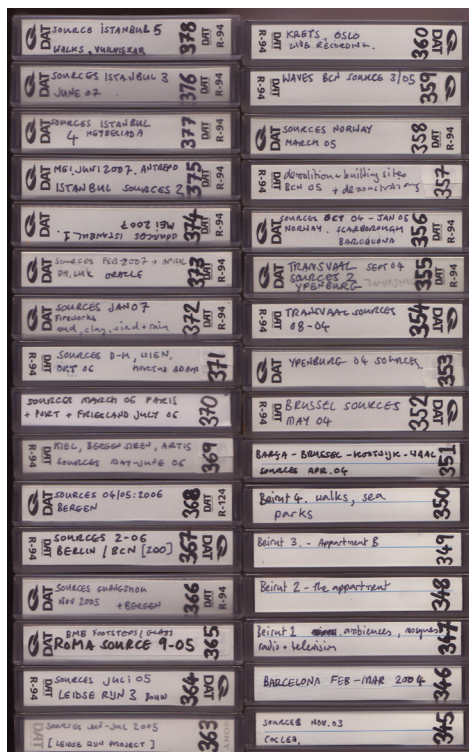 DAT SOURCE ISTANBUL 5
WALKS,
378
DAT R-94
DAT SOURCES ISTANBUL 3
JUNE 07
376
DAT R-94
DAT SOURCES ISTANBUL
4 HEYBELIADA
377
DAT R-94
DAT MEI, JUNI 2007. ANTREPO
ISTANBUL SOURCES 2
375
DAT R-94
DAT SOURCES ISTANBUL 1.
MEI 2007
374
R-94
DAT SOURCES FEB 2007 + APRIL
DH, UK ORACLE
373
DAT R-94
DAT SOURCES JAN 07
Fireworks
wind + rain
372
DAT R-94
R-94 DAT SOURCES D-H, WIEN,
OKT 06
371
SOURCES MARCH 06 PARIS
+ PORT + FRIESLAND JULY 06
370
R-94 DAT KIEL, BERGEN SIREN, ARTIS
SOURCES MAY-JUNE 06
369
DAT SOURCES 04/05:2006
BERGEN
368
DAT R-124
R-94 DAT SOURCES 2-06
BERLIN / BCN [ZOO]
367
DAT
DAT SOURCES GUANGZHOU
NOV 2005 + BERGEN
366
DAT R-94
DAT BMB FOOTSTEPS / GLASS
ROMA SOURCE 9-05
365
R-94 DAT SOURCES JULI 05
LEIDSE RIJN 3 BOUW
364
DAT
DAT SOURCES JUN-JUL 2005
[LEIDSE RIJN PROJECT]
363
SONY
R-94 DAT KRETS, OSLO
LIVE RECORDING.
360
DAT
R-94 DAT WAVES BCN SOURCE 3/05
359
DAT
DAT SOURCES NORWAY
MARCH 05
358
DAT R-94
R-94 DAT demolition + building sites
BCN 05 + demonstrations
357
DAT SOURCES OCT 04 - JAN 05
NORWAY. SCARBOROUGH
BARCELONA
356
DAT R-94
DAT TRANSVAAL SEPT 04
SOURCES 2
YPENBURG
355
DAT R-94
R-94 DAT TRANSVAAL SOURCES
08-04
354
DAT
DAT YPENBURG 04 SOURCES.
353
R-94 DAT BRUSSEL SOURCES
MAY 04
352
DAT
BARÇA - BRUSSEL - KOOTWIJK - WAAL
SOURCES APR. 04
351
Beirut 4. walks, sea
parks
350
Beirut 3. - Appartment B
349
Beirut 2 - the appartment
348
Beirut 1 ambiences, mosques
radio + television
347
BARCELONA FEB - MAR 2004
346
SOURCES NOV. 03
COCLEA.
345